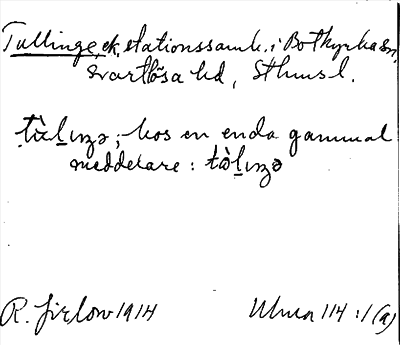 Tullinge, ek, stationssamh. i Botkyrka sn,
Svartlösa hd, Sthmsl.
tùlıŋə; hos en enda gammal
meddelare: tòlıŋə
R. Jirlow 1914 Uhwa 114:1 (a)